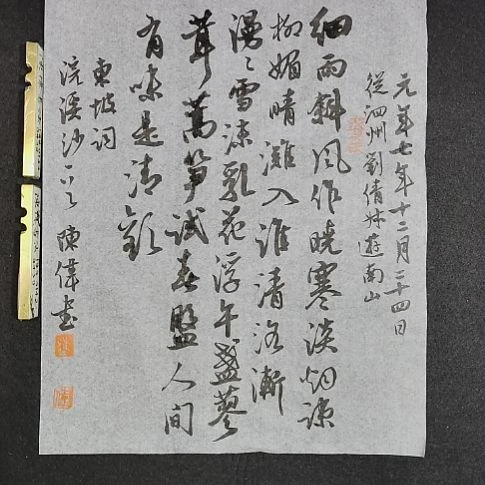 元年七年十二月二十四日
從泗州劉倩叔遊南山
細雨斜風作曉寒淡烟疎
柳媚晴灘入淮清洛漸
漫々雪沫乳花浮午盞蓼
茸蒿筍試春盤人间
有味是清歡
東坡詞
浣溪沙 陳偉書